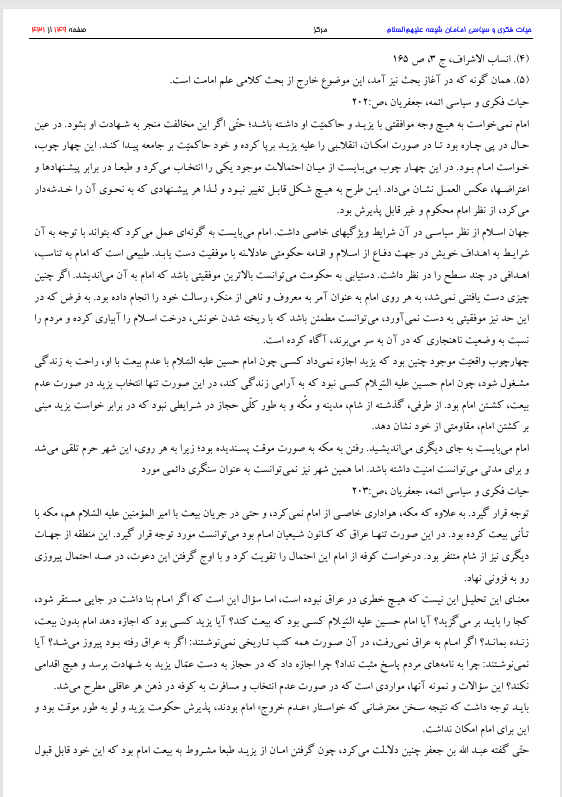 حیات فکری و سیاسی امامان شیعه علیهم‌السلام مرکز صفحه ۱۴۹ از ۴۳۱
(۴). انساب الاشراف، ج ۳، ص ۱۶۵
(۵). همان گونه که در آغاز بحث نیز آمد، این موضوع خارج از بحث کلامی علم امامت است.
حیات فکری و سیاسی ائمه، جعفریان ،ص:۲۰۲
امام نمی‌خواست به هیچ وجه موافقتی با یزید و حاکمیّت او داشته باشد؛ حتّی اگر این مخالفت منجر به شهادت او بشود. در عین
حال در پی چاره بود تا در صورت امکان، انقلابی را علیه یزید برپا کرده و خود حاکمیّت بر جامعه پیدا کند. این چهار چوب،
خواست امام بود. در این چهار چوب می‌بایست از میان احتمالات موجود یکی را انتخاب می‌کرد و طبعا در برابر پیشنهادها و
اعتراضها، عکس العمل نشان می‌داد. این طرح به هیچ شکل قابل تغییر نبود و لذا هر پیشنهادی که به نحوی آن را خدشه‌دار
می‌کرد، از نظر امام محکوم و غیر قابل پذیرش بود.
جهان اسلام از نظر سیاسی در آن شرایط ویژگیهای خاصی داشت. امام می‌بایست به گونه‌ای عمل می‌کرد که بتواند با توجه به آن
شرایط به اهداف خویش در جهت دفاع از اسلام و اقامه حکومتی عادلانه با موفقیت دست یابد. طبیعی است که امام به تناسب،
اهدافی در چند سطح را در نظر داشت. دستیابی به حکومت می‌توانست بالاترین موفقیتی باشد که امام به آن می‌اندیشد. اگر چنین
چیزی دست یافتنی نمی‌شد، به هر روی امام به عنوان آمر به معروف و ناهی از منکر، رسالت خود را انجام داده بود. به فرض که در
این حد نیز موفقیتی به دست نمی‌آورد، می‌توانست مطمئن باشد که با ریخته شدن خونش، درخت اسلام را آبیاری کرده و مردم را
نسبت به وضعیت ناهنجاری که در آن به سر می‌برند، آگاه کرده است.
چهارچوب واقعیّت موجود چنین بود که یزید اجازه نمی‌داد کسی چون امام حسین علیه السّلام با عدم بیعت با او، راحت به زندگی
مشغول شود، چون امام حسین علیه السّلام کسی نبود که به آرامی زندگی کند، در این صورت تنها انتخاب یزید در صورت عدم
بیعت، کشتن امام بود. از طرفی، گذشته از شام، مدینه و مکّه و به طور کلّی حجاز در شرایطی نبود که در برابر خواست یزید مبنی
بر کشتن امام، مقاومتی از خود نشان دهد.
امام می‌بایست به جای دیگری می‌اندیشید. رفتن به مکه به صورت موقت پسندیده بود؛ زیرا به هر روی، این شهر حرم تلقی می‌شد
و برای مدتی می‌توانست امنیت داشته باشد. اما همین شهر نیز نمی‌توانست به عنوان سنگری دائمی مورد
حیات فکری و سیاسی ائمه، جعفریان ،ص:۲۰۳
توجه قرار گیرد. به علاوه که مکه، هواداری خاصی از امام نمی‌کرد، و حتی در جریان بیعت با امیر المؤمنین علیه السّلام هم، مکه با
تأنی بیعت کرده بود. در این صورت تنها عراق که کانون شیعیان امام بود می‌توانست مورد توجه قرار گیرد. این منطقه از جهات
دیگری نیز از شام متنفر بود. درخواست کوفه از امام این احتمال را تقویت کرد و با اوج گرفتن این دعوت، در صد احتمال پیروزی
رو به فزونی نهاد.
معنای این تحلیل این نیست که هیچ خطری در عراق نبوده است، اما سؤال این است که اگر امام بنا داشت در جایی مستقر شود،
کجا را باید بر می‌گزید؟ آیا امام حسین علیه السّلام کسی بود که بیعت کند؟ آیا یزید کسی بود که اجازه دهد امام بدون بیعت،
زنده بماند؟ اگر امام به عراق نمی‌رفت، در آن صورت همه کتب تاریخی نمی‌نوشتند: اگر به عراق رفته بود پیروز می‌شد؟ آیا
نمی‌نوشتند: چرا به نامه‌های مردم پاسخ مثبت نداد؟ چرا اجازه داد که در حجاز به دست عمّال یزید به شهادت برسد و هیچ اقدامی
نکند؟ این سؤالات و نمونه آنها، مواردی است که در صورت عدم انتخاب و مسافرت به کوفه در ذهن هر عاقلی مطرح می‌شد.
باید توجه داشت که نتیجه سخن معترضانی که خواستار «عدم خروج» امام بودند، پذیرش حکومت یزید و لو به طور موقت بود و
این برای امام امکان نداشت.
حتّی گفته عبد الله بن جعفر چنین دلالت می‌کرد، چون گرفتن امان از یزید طبعا مشروط به بیعت امام بود که این خود قابل قبول